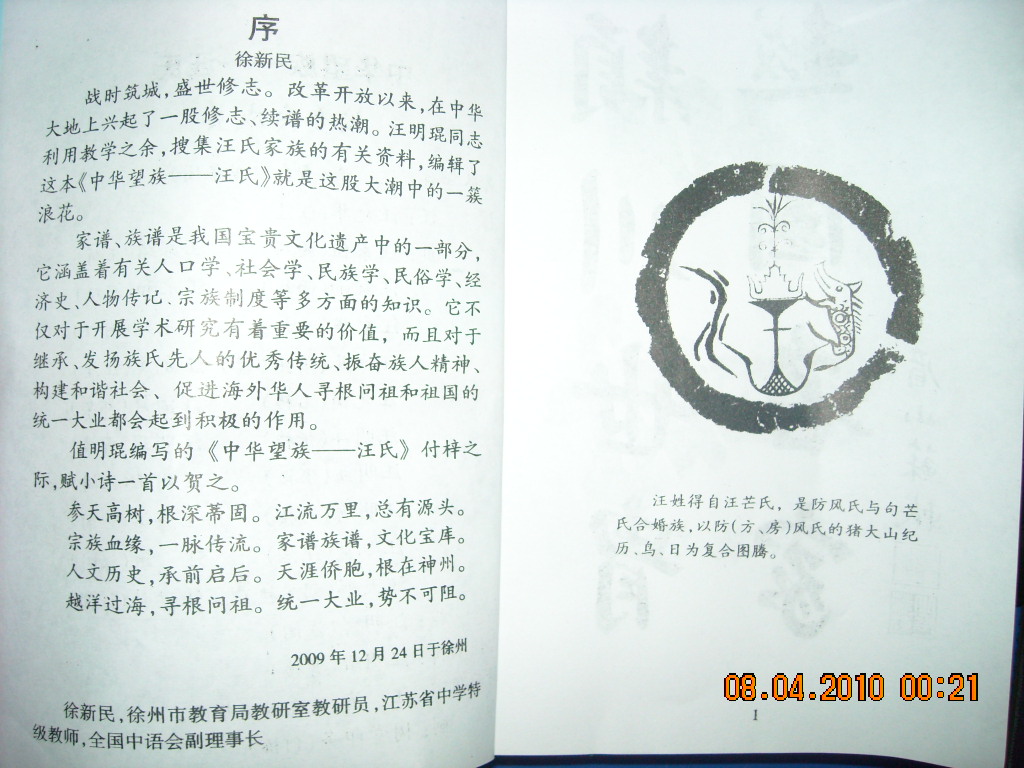 序
徐新民
战时筑城，盛世修志。改革开放以来，在中华
大地上兴起了一股修志、续谱的热潮。汪明琨同志
利用教学之余，搜集汪氏家族的有关资料，编辑了
这本《中华望族——汪氏》就是这股大潮中的一簇
浪花。
家谱、族谱是我国宝贵文化遗产中的一部分，
它涵盖着有关人口学、社会学、民族学、民俗学、经
济史、人物传记、宗族制度等多方面的知识。它不
仅对于开展学术研究有着重要的价值，而且对于
继承、发扬族氏先人的优秀传统、振奋族人精神、
构建和谐社会、促进海外华人寻根问祖和祖国的
统一大业都会起到积极的作用。
值明琨编写的《中华望族——汪氏》付梓之
际，赋小诗一首以贺之。
参天高树，根深蒂固。江流万里，总有源头。
宗族血缘，一脉传流。家谱族谱，文化宝库。
人文历史，承前启后。天涯侨胞，根在神州。
越洋过海，寻根问祖。统一大业，势不可阻。
2009年12月24日于徐州
徐新民，徐州市教育局教研室教研员，江苏省中学特
级教师，全国中语会副理事长
汪姓得自汪芒氏，是防风氏与句芒
氏合婚族，以防(方、房)风氏的猪大山纪
历、鸟、日为复合图腾。
1
08.04.2010 00:21